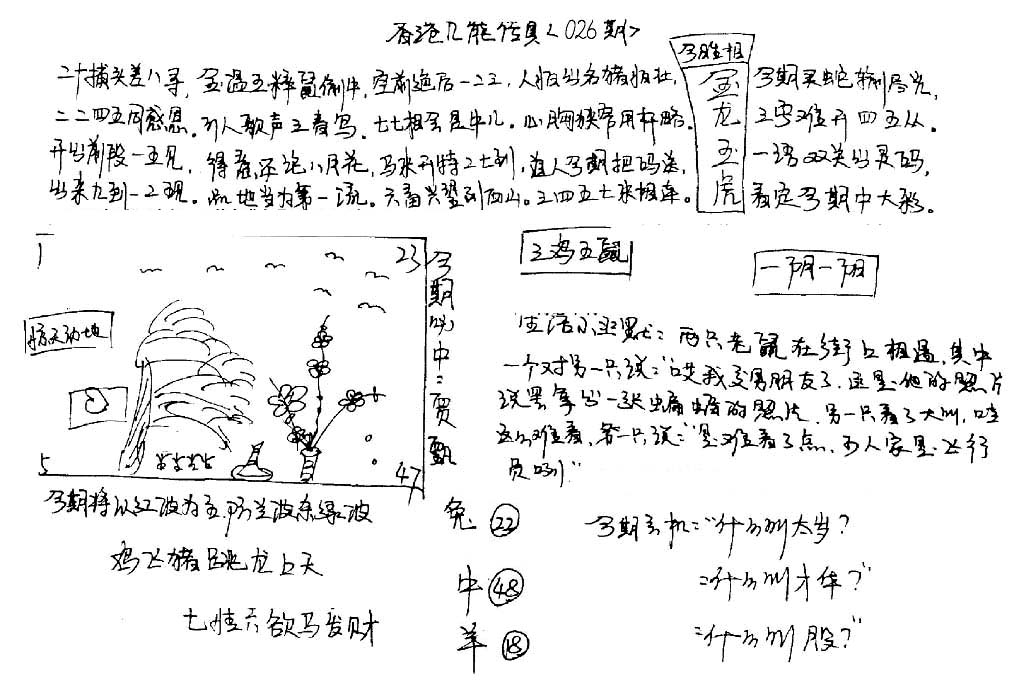 香港几能传真<026期>
今期生相
金龙玉虎
二十捕头差八寻,金温五粹鼠倒中,空前追后一二三,人报出名猪报壮,
二二四五同感恩。引人歌声三春写。七七相会是牛儿。心胸狭窄用杆略。
开出前段一五见,得意不论八月花,马来开特二七到,直人今期把码送,
出来九到一二现。此地当为第一流。六畜兴望到西山。三四五七来相连。
今期买蛇输局光,
三零难开四五从。
一语双关出灵码,
看定今期中大彩。
1
23
5
47
惊天动地
今期必中:贾甄
三鸡五鼠
一阴一阳
生活小幽默:两只老鼠在街上相遇,其中
一个对另一只说:"哎我交男朋友了,这是他的照片
说罢拿出一张蝙蝠的照片,另一只看了大叫,哇
这么难看,第一只说:"是难看了点,可人家是飞行
员咧!"
今期将以红波为主,防兰波杀绿波
鸡飞猪跳龙上天
七情六欲马发财
兔 22
牛 48
羊 18
今期玄机:"什么叫太岁?
:什么叫才华?"
:什么叫股?"